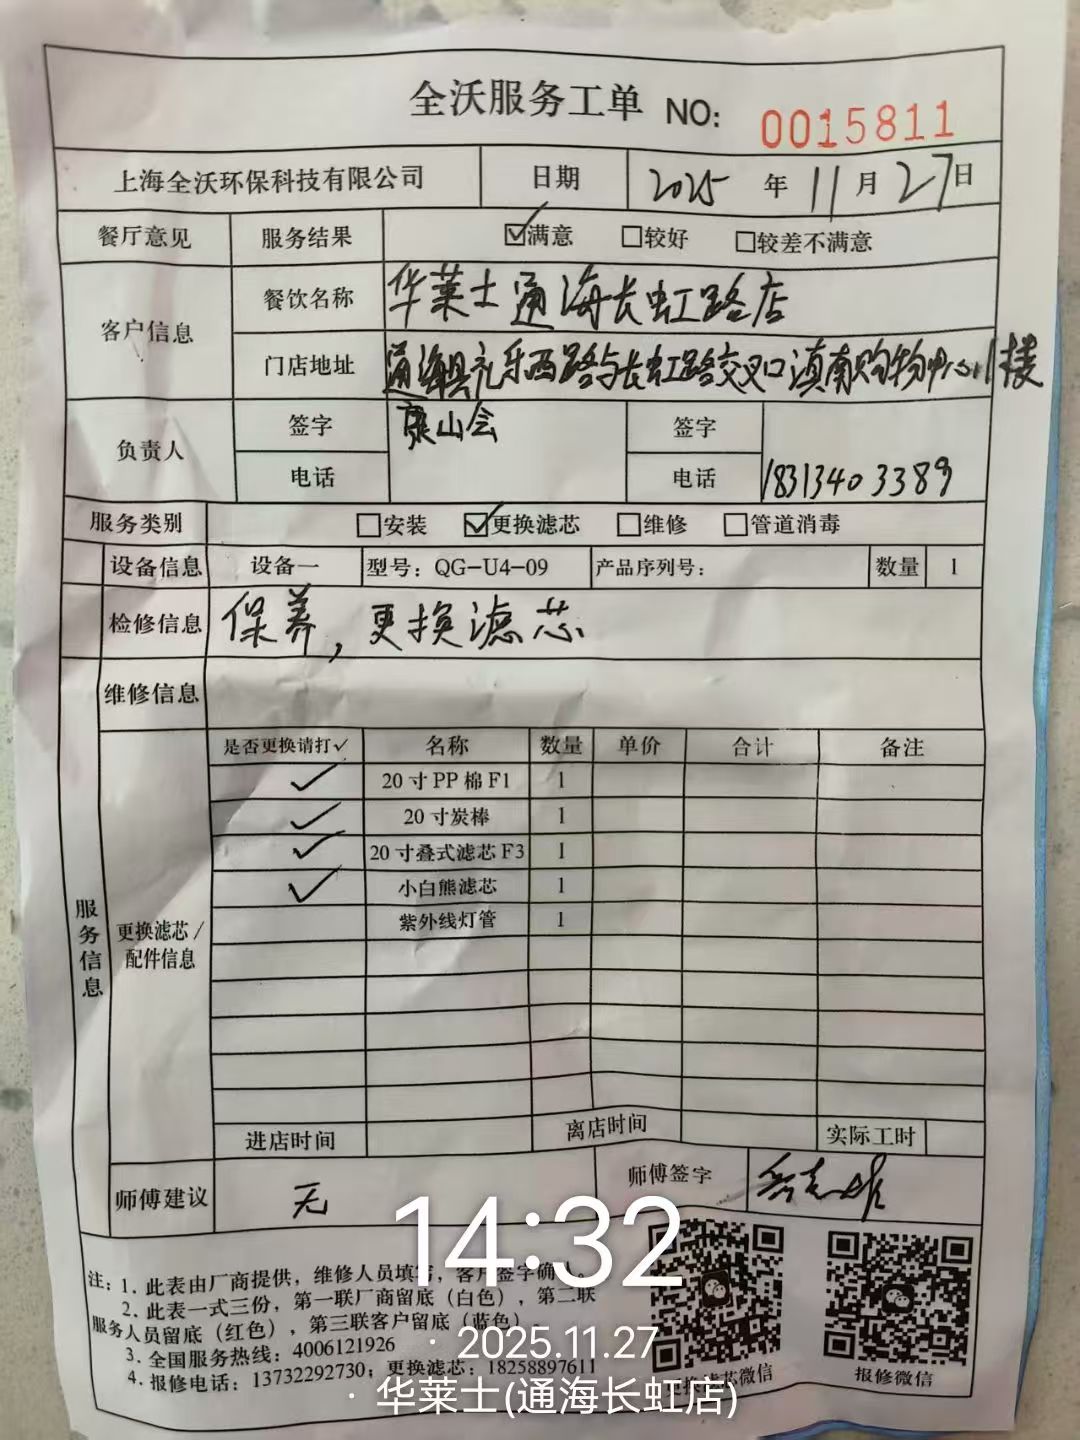 全沃服务工单 NO: 0015811
上海全沃环保科技有限公司 日期 2025 年 11 月 27 日
餐厅意见 服务结果 ☑满意 □较好 □较差不满意
客户信息
餐饮名称 华莱士通海长虹路店
门店地址 通海县礼乐西路与长虹路交叉口滇南购物中心1楼
负责人
签字 山会 签字
电话 电话 18313403389
服务类别 □安装 ☑更换滤芯 □维修 □管道消毒
设备信息 设备一 型号：QG-U4-09 产品序列号： 数量 1
检修信息 保养，更换滤芯
维修信息
服务信息
更换滤芯/
配件信息
是否更换请打✓ 名称 数量 单价 合计 备注
✓ 20寸PP棉F1 1
✓ 20寸炭棒 1
✓ 20寸叠式滤芯F3 1
✓ 小白熊滤芯 1
紫外线灯管 1
进店时间 离店时间 实际工时
师傅建议 无 师傅签字
14:32
注：1. 此表由厂商提供，维修人员填写，客户签字确
2. 此表一式三份，第一联厂商留底（白色），第二联
服务人员留底（红色），第三联客户留底（蓝色）。
3. 全国服务热线：4006121926
4. 报修电话：13732292730；更换滤芯：18258897611
更换滤芯微信 报修微信
· 2025.11.27
· 华莱士(通海长虹店)